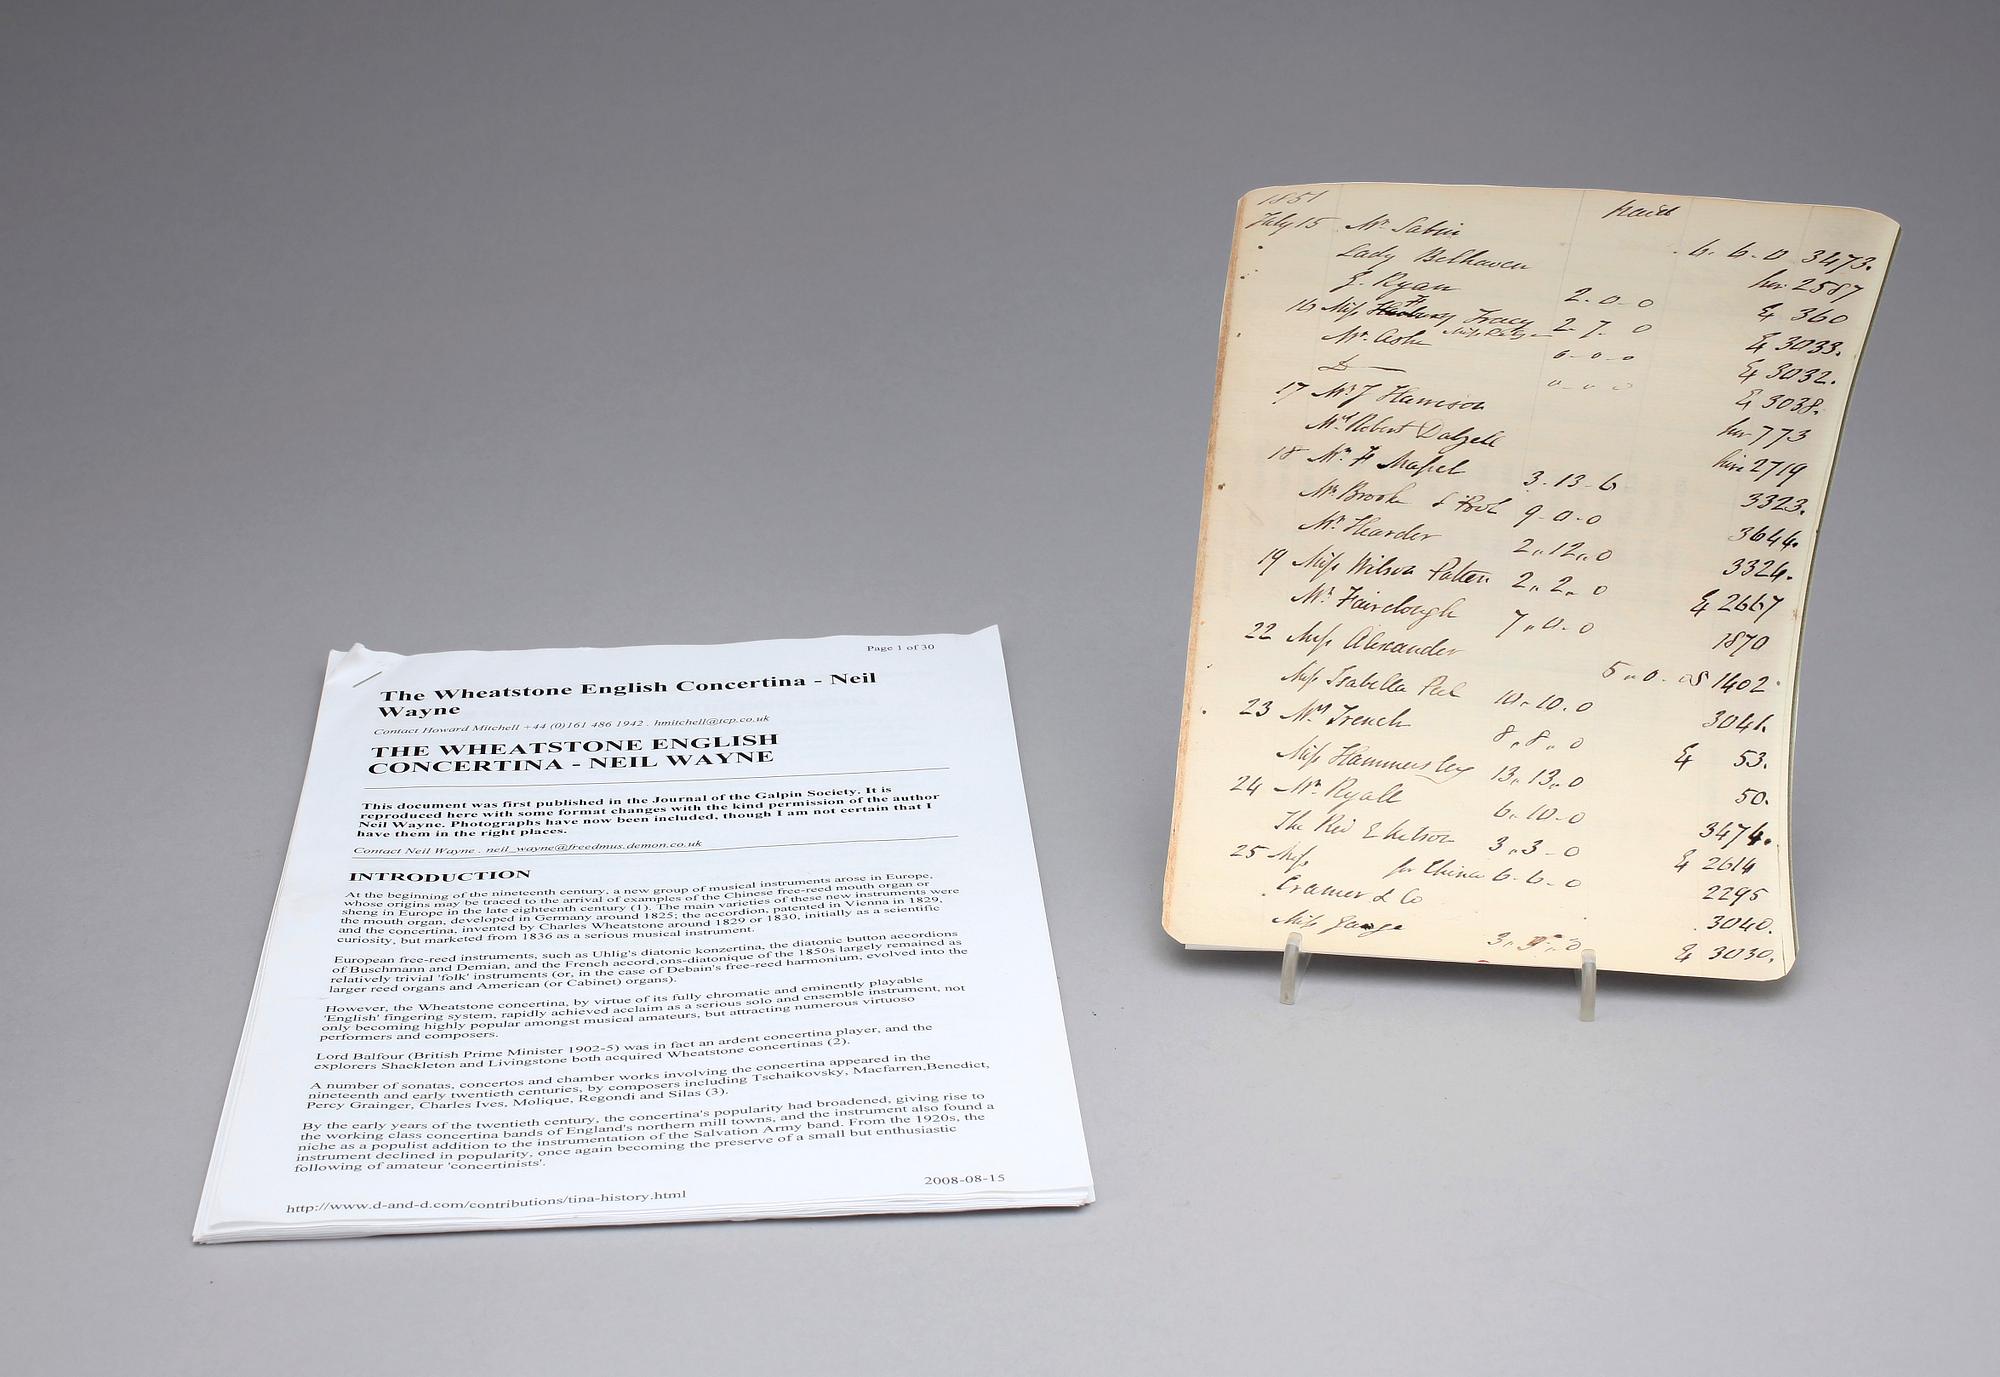 Page 1 of 30
The Wheatstone English Concertina - Neil
Wayne
Contact Howard Mitchell +44 (0)161 486 1942 . hmitchell@tcp.co.uk
THE WHEATSTONE ENGLISH
CONCERTINA - NEIL WAYNE
This document was first published in the Journal of the Galpin Society. It is
reproduced here with some format changes with the kind permission of the author
Neil Wayne. Photographs have now been included, though I am not certain that I
have them in the right places.
Contact Neil Wayne . neil_wayne@freedmus.demon.co.uk
INTRODUCTION
At the beginning of the nineteenth century, a new group of musical instruments arose in Europe,
whose origins may be traced to the arrival of examples of the Chinese free-reed mouth organ or
sheng in Europe in the late eighteenth century (1). The main varieties of these new instruments were
the mouth organ, developed in Germany around 1825; the accordion, patented in Vienna in 1829,
and the concertina, invented by Charles Wheatstone around 1829 or 1830, initially as a scientific
curiosity, but marketed from 1836 as a serious musical instrument.
European free-reed instruments, such as Uhlig's diatonic konzertina, the diatonic button accordions
of Buschmann and Demian, and the French accord,ons-diatonique of the 1850s largely remained as
relatively trivial 'folk' instruments (or, in the case of Debain's free-reed harmonium, evolved into the
larger reed organs and American (or Cabinet) organs).
However, the Wheatstone concertina, by virtue of its fully chromatic and eminently playable
'English' fingering system, rapidly achieved acclaim as a serious solo and ensemble instrument, not
only becoming highly popular amongst musical amateurs, but attracting numerous virtuoso
performers and composers.
Lord Balfour (British Prime Minister 1902-5) was in fact an ardent concertina player, and the
explorers Shackleton and Livingstone both acquired Wheatstone concertinas (2).
A number of sonatas, concertos and chamber works involving the concertina appeared in the
nineteenth and early twentieth centuries, by composers including Tschaikovsky, Macfarren,Benedict,
Percy Grainger, Charles Ives, Molique, Regondi and Silas (3).
By the early years of the twentieth century, the concertina's popularity had broadened, giving rise to
the working class concertina bands of England's northern mill towns, and the instrument also found a
niche as a populist addition to the instrumentation of the Salvation Army band. From the 1920s, the
instrument declined in popularity, once again becoming the preserve of a small but enthusiastic
following of amateur 'concertinists'.
http://www.d-and-d.com/contributions/tina-history.html 2008-08-15
1851 paid
July 15 Mr Sabin 6. 6. 0 3473.
Lady Belhaven hire 2587
J. Ryan 2. 0. 0 360
16 Miss Tracy 2. 7. 0 3033.
Mr Ashe 0-0-0 3032.
Do 0-0-0 3038.
17 Mr J Harrison hire 773
Mr Robert Dalzell hire 2719
18 Mr F Mapel 3. 13. 6 3323.
Mr Brook 9-0-0 3644.
Mr Hearder 2,,12,,0 3324.
19 Miss Wilson Patten 2,,2,,0 2667
Mr Fairclough 7,,0-0 1870
22 Miss Alexander 5,,0-0 1402.
Miss Isabella Peel 10,,10.0 3041.
23 Mr French 8,,8,,0 53.
Miss Hammersley 13,,13,,0 50.
24 Mr Ryall 6-10-0 3474.
The Rev E 3,,3-0 2614
25 Miss for China 6-6-0 2295
Cramer & Co 3040.
Miss 3030.